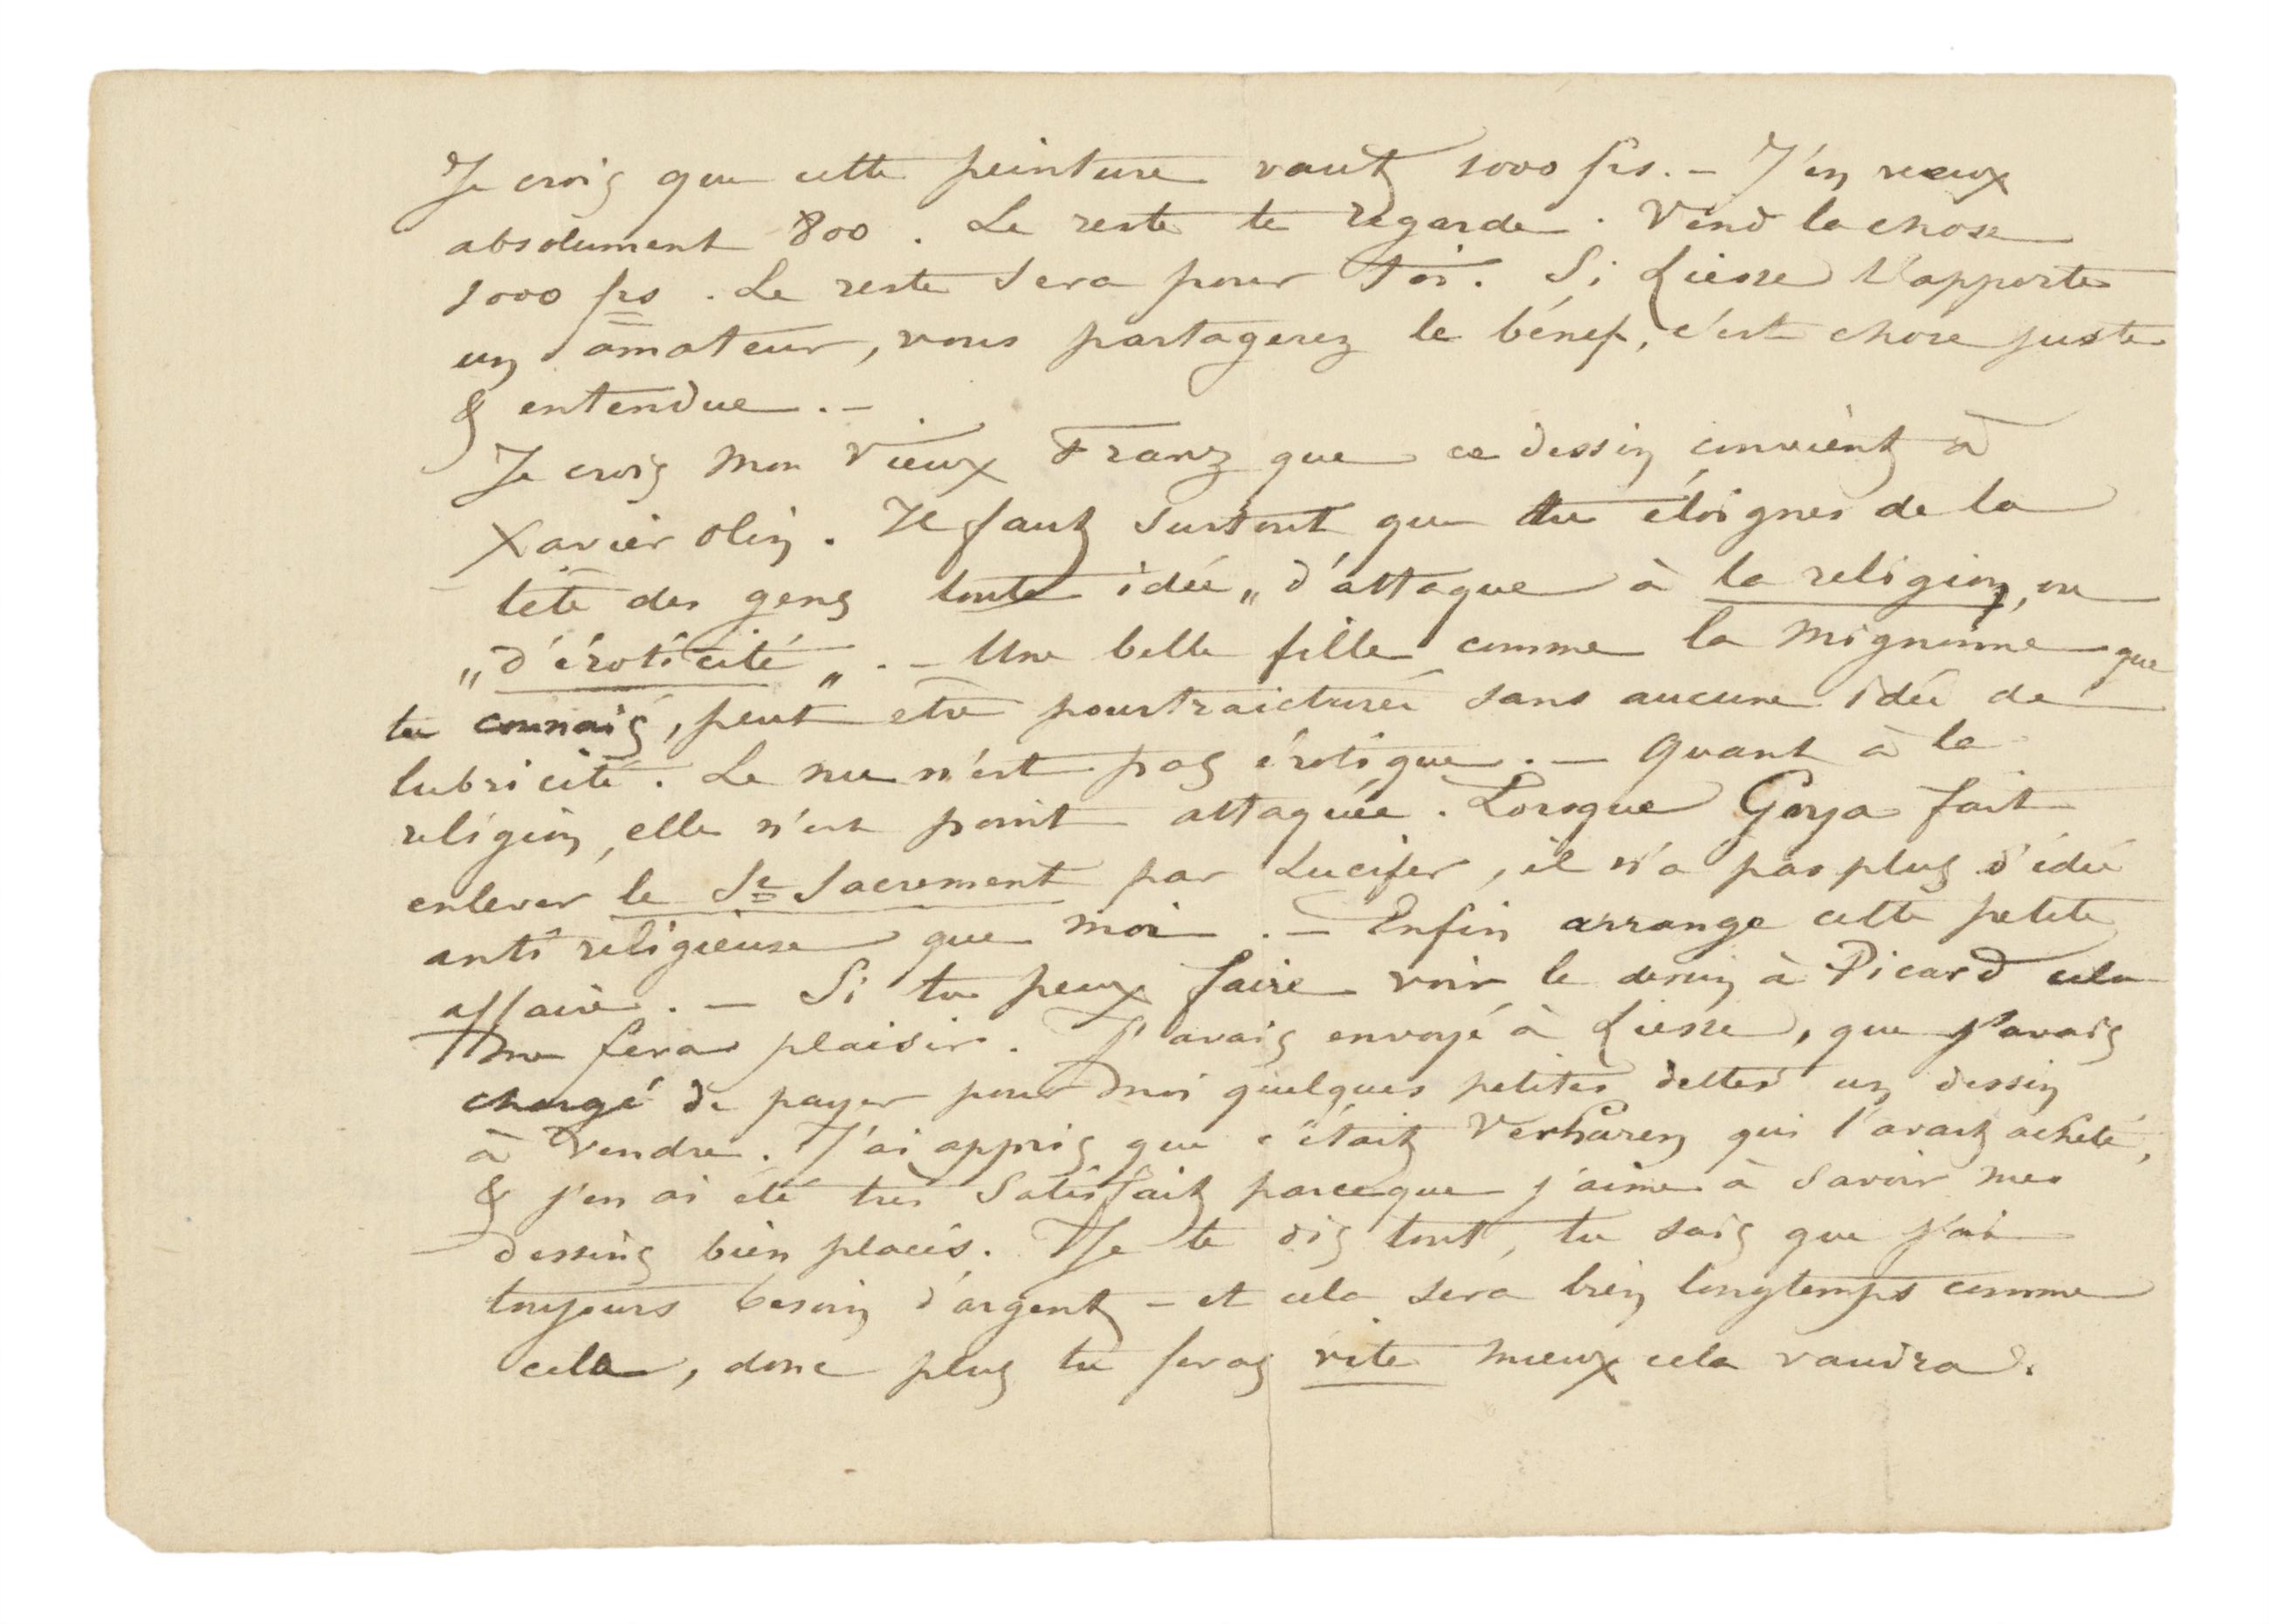 Je crois que cette peinture vaut 1000 frs. – J'en veux
absolument 800. Le reste te regarde. Vend la chose
1000 frs. Le reste sera pour Toi. Si Liesse t'apporte
un amateur, vous partagerez le bénef, c'est chose juste
& entendue. –
Je crois mon vieux Franz que ce dessin convient à
Xavier Olin. Il faut surtout que tu éloignes de la
tête des gens toute idée „d'attaque à la religion, ou
„d'éroticité„. – Une belle fille comme la mignonne que
tu connais, peut etre pourtraicturée sans aucune idée de
lubricité. Le nu n'est pas érotique. – Quant à la
religion, elle n'est point attaquée. Lorsque Goya fait
enlever le St Sacrement par Lucifer, il n'a pas plus d'idée
anti religieuse que moi. – Enfin arrange cette petite
affaire. – Si tu peux faire voir le dessin à Picard cela
me fera plaisir. J'avais envoyé à Liesse, que j'avais
chargé de payer pour moi quelques petites dettes un dessin
à vendre. J'ai appris que c'était Verharen qui l'avait acheté,
& j'en ai été très satisfait parceque j'aime à savoir mes
dessins bien placés. Je te dis tout, tu sais que j'ai
toujours besoin d'argent – et cela sera bien longtemps comme
cela, donc plus tu feras vite mieux cela vaudra.